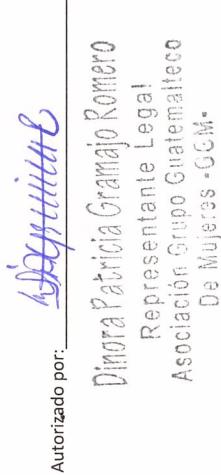 Autorizado por:
Dinora Patricia Gramajo Romero
Representante Legal
Asociación Grupo Guatemalteco
De Mujeres -GGM-